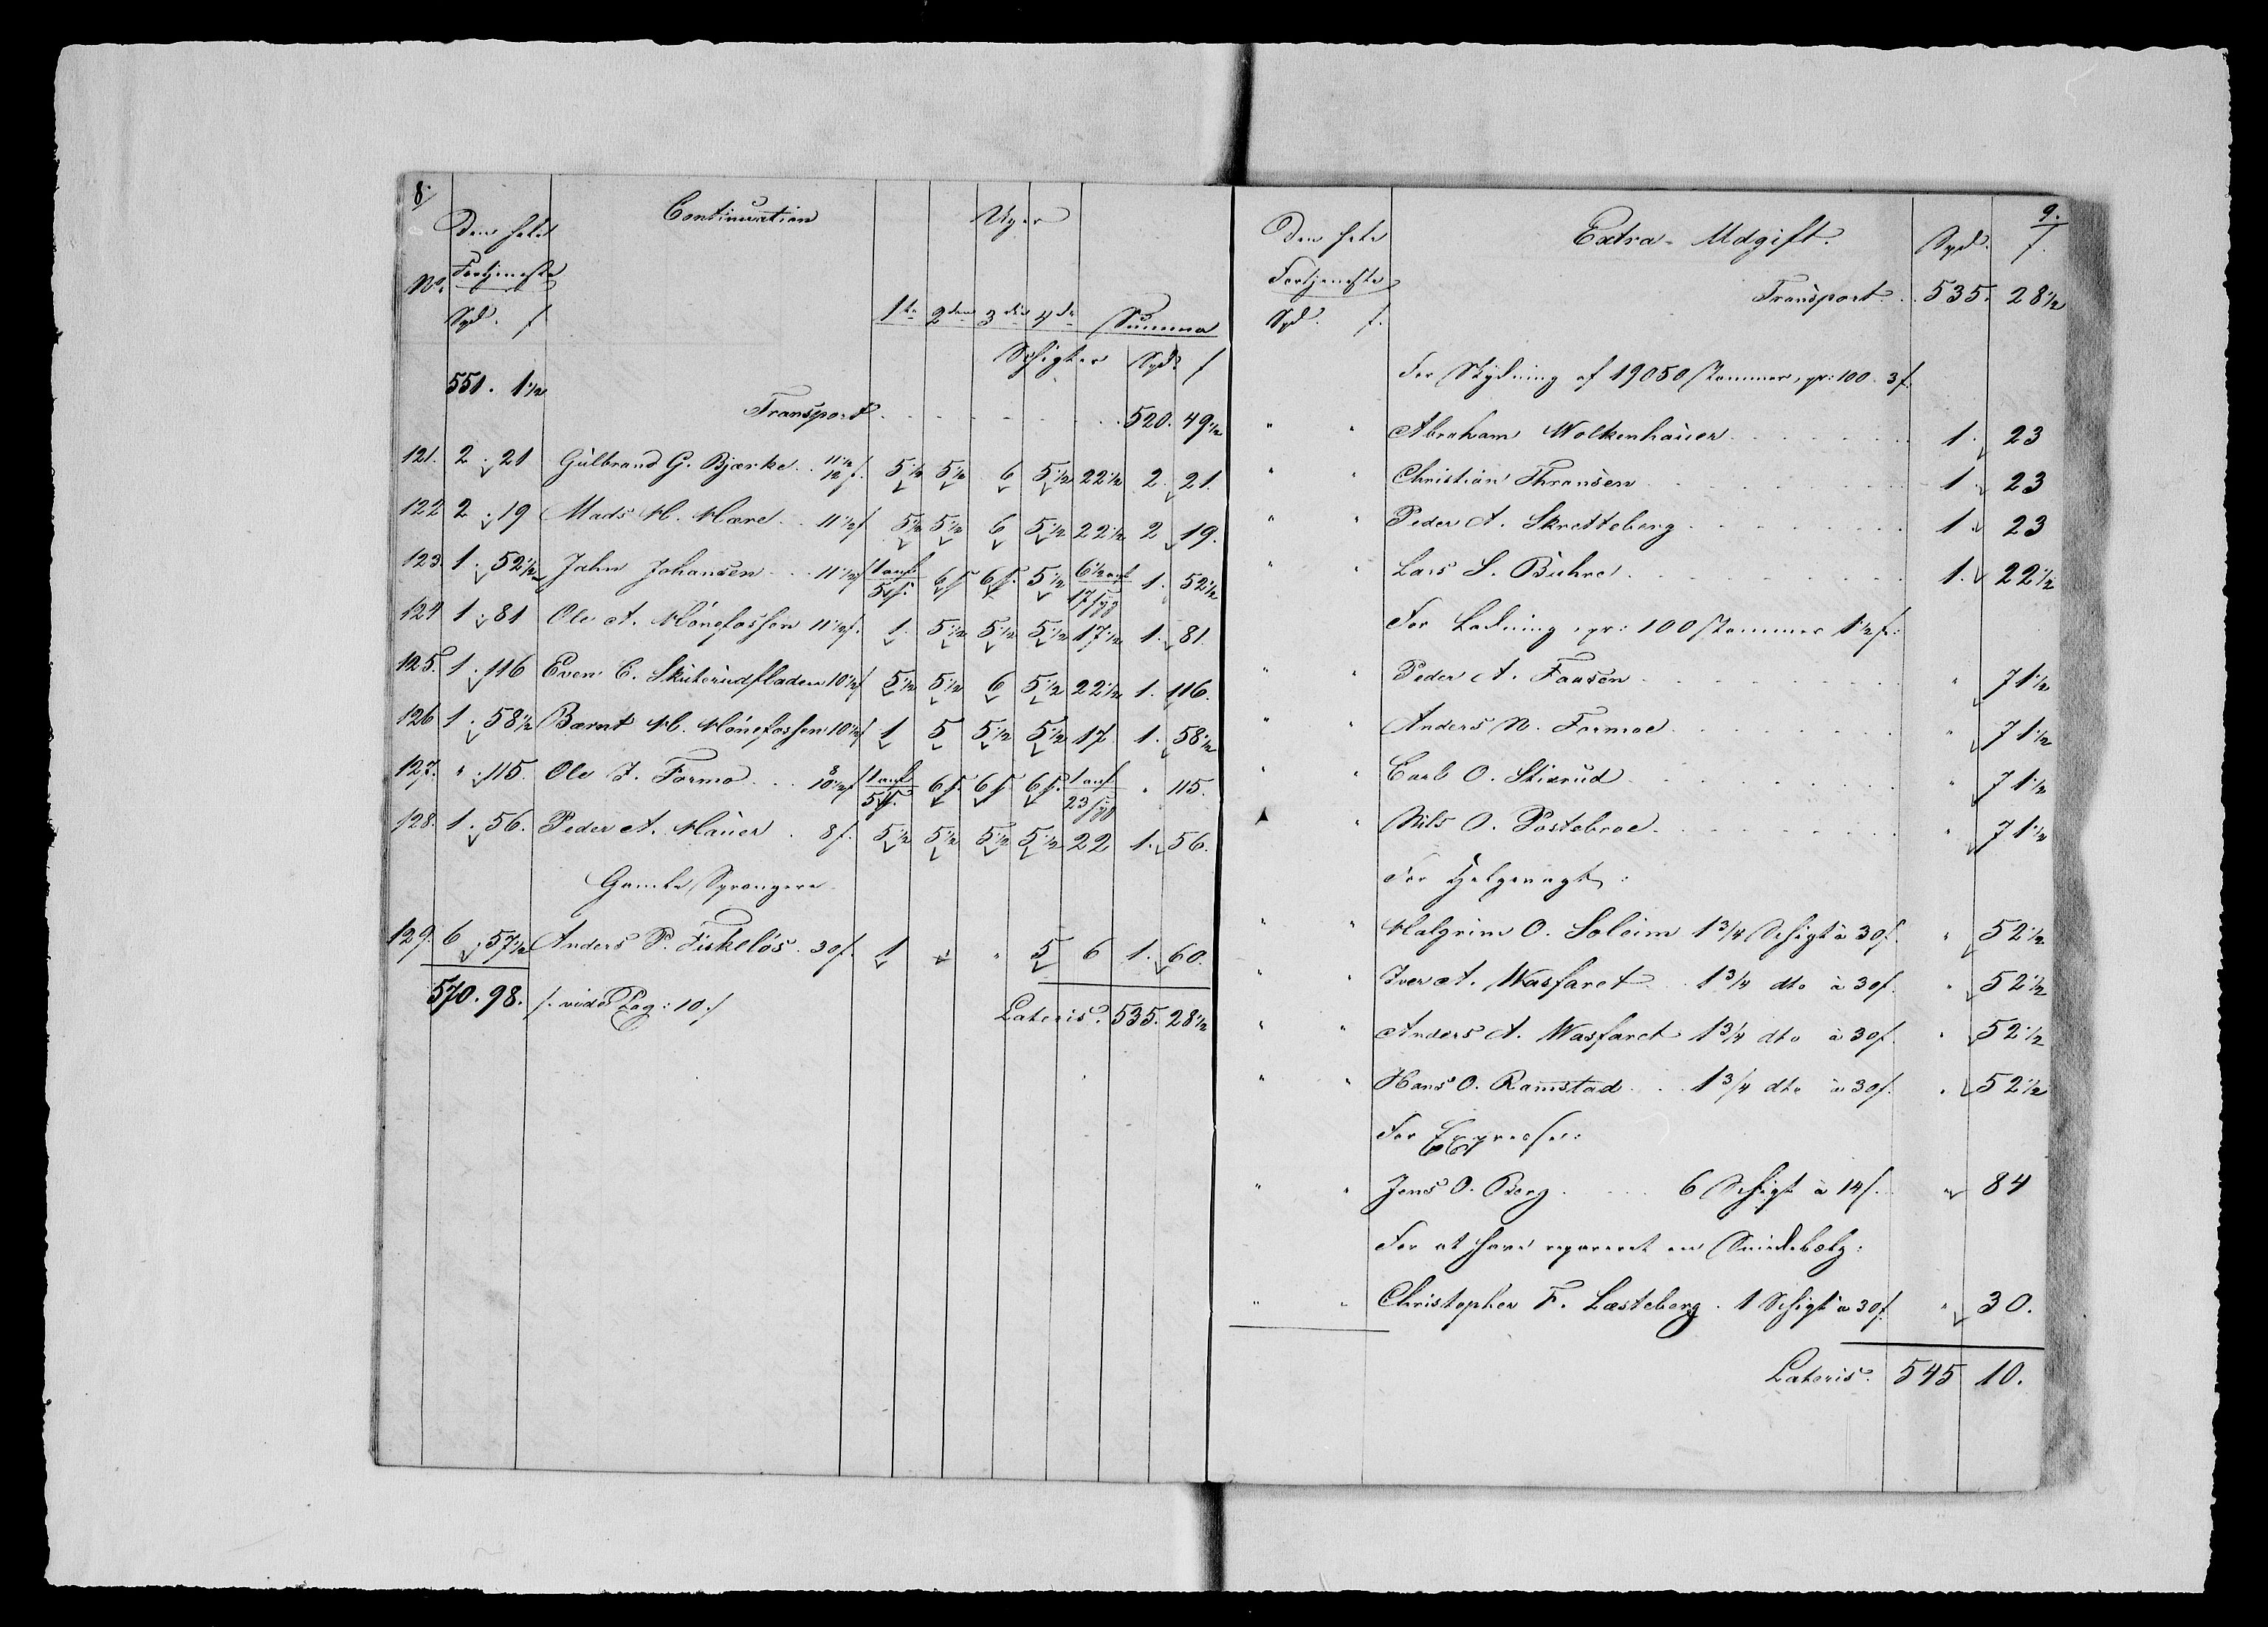 8.
Den hele Continuation Uger
No. Fortjeneste
Spd. ſ 1te 2den 3die 4de Summa
Schigter Spd. ſ
551. 1 1/2
Transport . . . . . . . 520. 49 1/2
121. 2. 21 Gulbrand G. Bjerke . . 11 1/2 12 ſ. 5 1/2 5 1/2 6 5 1/2 22 1/2 2. 21.
122 2. 19 Mads H. Hære . . 11 1/2 ſ 5 1/2 5 1/2 6 5 1/2 22 1/2 2 19.
123. 1. 52 1/2 Jahn Johansen . . . 11 1/2 ſ 6 ſ 6 ſ. 5 1/2 1. 52 1/2
124 1. 81 Ole A. Hönefossen 11 1/2 ſ. 1. 5 1/2 5 1/2 5 1/2 17 1/2 1. 81.
125. 1. 116 Even C. Skuterudfladen 10 1/2 ſ 5 1/2 5 1/2 6 5 1/2 22 1/2 1. 116.
126 1. 58 1/2 Bærnt H. Hönefossen 10 1/2 ſ 1 5 5 1/2 5 1/2 17 1. 58 1/2
127. " 115. Ole J. Formo . . . 8 10 1/2 ſ 6 ſ. 6 ſ 6 ſ. " 115.
128. 1. 56. Peder A. Hauer . 8 ſ. 5 1/2 5 1/2 5 1/2 5 1/2 22 1. 56.
Gamle Sprængere
129. 6. 57 1/2 Anders P. Fiskelös . 30 ſ. 1 " " 5 6 1. 60.
570. 98. /: vide Pag: 10 :/ Lateris. 535. 28 1/2
9.
Den hele Extra-Udgift. Spd. ſ.
Fortjeneste Transport . . 535. 28 1/2
Spd. ſ.
For Skydning af 19050 Tommer, pr: 100 3 ſ.
" " Abraham Wolkenhauer . . . . . . . 1. 23
" " Christian Thransen . . . . . . . . . 1. 23
" " Peder A. Skretteberg . . . . . . . . 1. 23
" " Lars S. Buhre . . . . . . . . . 1. 22 1/2
For Ladning, pr: 100 Tommer 1 1/2 ſ:
" " Peder A. Fausen . . . . . . . . . " 71 1/2
" " Anders N. Formoe . . . . . . . . " 71 1/2
" " Carl O. Stixrud . . . . . . . . . " 71 1/2
" " Nils O. Postebroe . . . . . . . . " 71 1/2
For Helgevagt:
" " Halgrim O. Soleim 1 3/4 Schigt à 30 ſ. " 52 1/2
" " Iver A. Wasfaret . . 1 3/4 dto à 30 ſ. " 52 1/2
" " Anders A. Wasfaret 1 3/4 dto à 30 ſ. " 52 1/2
" " Hans O. Ramstad . . . 1 3/4 dto à 30 ſ. " 52 1/2
For Expresse:
" " Jens O. Berg . . . . . 6 Schigt à 14 ſ. " 84
For at have repareret en Smidebælg:
" " Christopher F. Læsteberg . 1 Schigt à 30 ſ. " 30.
Lateris. 545 10.